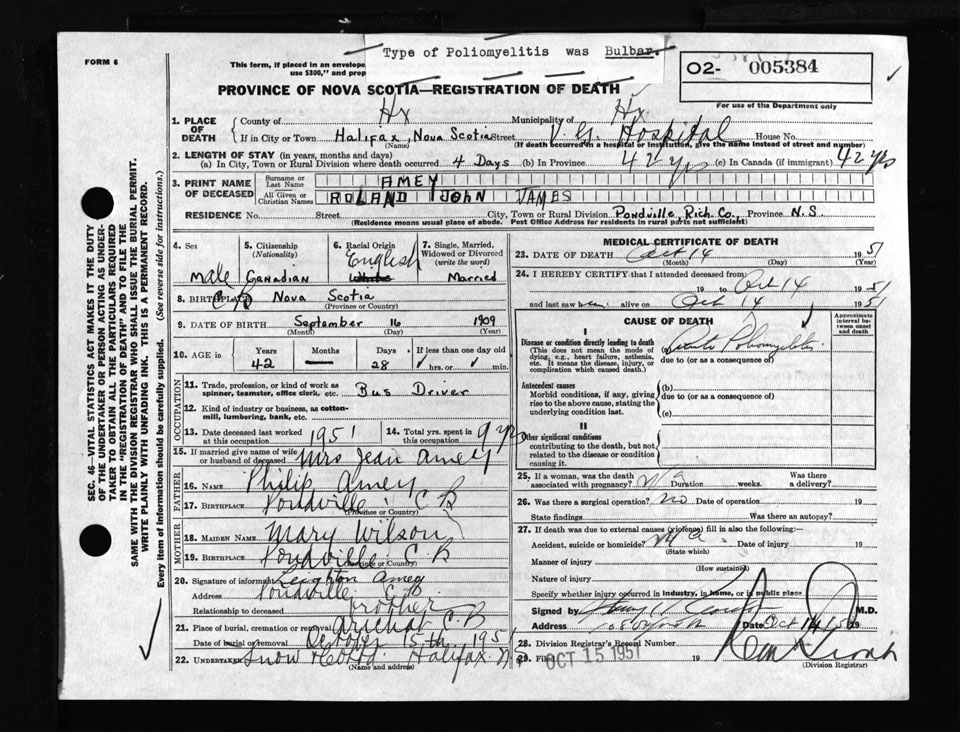 Type of Poliomyelitis was Bulbar.
FORM 6
This form, if placed in an envelope
use $300," and prop
02- 005384
For use of the Department only
PROVINCE OF NOVA SCOTIA—REGISTRATION OF DEATH
1. PLACE OF DEATH
County of Hx Municipality of Hx
If in City or Town Halifax, Nova Scotia Street V. G. Hospital House No.
(Name) (If death occurred in a hospital or institution, give the name instead of street and number)
2. LENGTH OF STAY (in years, months and days)
(a) In City, Town or Rural Division where death occurred 4 Days (b) In Province 42 yrs (c) In Canada (if immigrant) 42 yrs
3. PRINT NAME OF DECEASED
Surname or Last Name AMEY
All Given or Christian Names ROLAND JOHN JAMES
RESIDENCE No. Street City, Town or Rural Division Pondville, Rich. Co., Province N.S
(Residence means usual place of abode. Post Office Address for residents in rural parts not sufficient)
4. Sex Male
5. Citizenship (Nationality) Canadian
6. Racial Origin English White
7. Single, Married, Widowed or Divorced (write the word) Married
8. BIRTHPLACE C B Nova Scotia
(Province or Country)
9. DATE OF BIRTH September 16 1909
(Month) (Day) (Year)
10. AGE in Years Months Days If less than one day old
42 28 hrs. or min.
OCCUPATION
11. Trade, profession, or kind of work as spinner, teamster, office clerk, etc. Bus Driver
12. Kind of industry or business, as cotton-mill, lumbering, bank, etc.
13. Date deceased last worked at this occupation 1951
14. Total yrs. spent in this occupation 9 yrs
15. If married give name of wife or husband of deceased Mrs Jean Amey
FATHER
16. NAME Philip Amey
17. BIRTHPLACE Pondville C B
(Province or Country)
MOTHER
18. MAIDEN NAME Mary Wilson
19. BIRTHPLACE Pondville C. B
(Province or Country)
20. Signature of informant Leighton Amey
Address Pondville C.B.
Relationship to deceased brother
21. Place of burial, cremation or removal Arichat C.B
Date of burial or removal October 15th 1951
22. UNDERTAKER Snow & Co Ltd. Halifax N.S
(Name and address)
MEDICAL CERTIFICATE OF DEATH
23. DATE OF DEATH Oct 14 1951
(Month) (Day) (Year)
24. I HEREBY CERTIFY that I attended deceased from
19 to Oct 14 1951
and last saw him alive on Oct 14 1951
CAUSE OF DEATH
Approximate interval between onset and death
I
Disease or condition directly leading to death
(This does not mean the mode of dying, e.g., heart failure, asthenia, etc. It means the disease, injury, or complication which caused death.)
Acute Poliomyelitis
due to (or as a consequence of)
Antecedent causes
Morbid conditions, if any, giving rise to the above cause, stating the underlying condition last.
(b)
due to (or as a consequence of)
(c)
II
Other significant conditions
contributing to the death, but not related to the disease or condition causing it.
25. If a woman, was the death associated with pregnancy? Duration weeks. Was there a delivery?
26. Was there a surgical operation? No Date of operation 19
State findings Was there an autopsy?
27. If death was due to external causes (violence) fill in also the following:—
Accident, suicide or homicide? Date of injury 19
(State which)
Manner of injury
(How sustained)
Nature of injury
Specify whether injury occurred in industry, in home, or in public place
Signed by M.D.
Address Date Oct 14 19
28. Division Registrar's Record Number
29. Filed OCT 15 1951 19
(Division Registrar)
SEC. 46—VITAL STATISTICS ACT MAKES IT THE DUTY
OF THE UNDERTAKER OR PERSON ACTING AS UNDER-
TAKER TO OBTAIN ALL THE PARTICULARS REQUIRED
IN THE "REGISTRATION OF DEATH" AND TO FILE THE
SAME WITH THE DIVISION REGISTRAR WHO SHALL ISSUE THE BURIAL PERMIT.
WRITE PLAINLY WITH UNFADING INK. THIS IS A PERMANENT RECORD.
Every item of information should be carefully supplied. (See reverse side for instructions.)